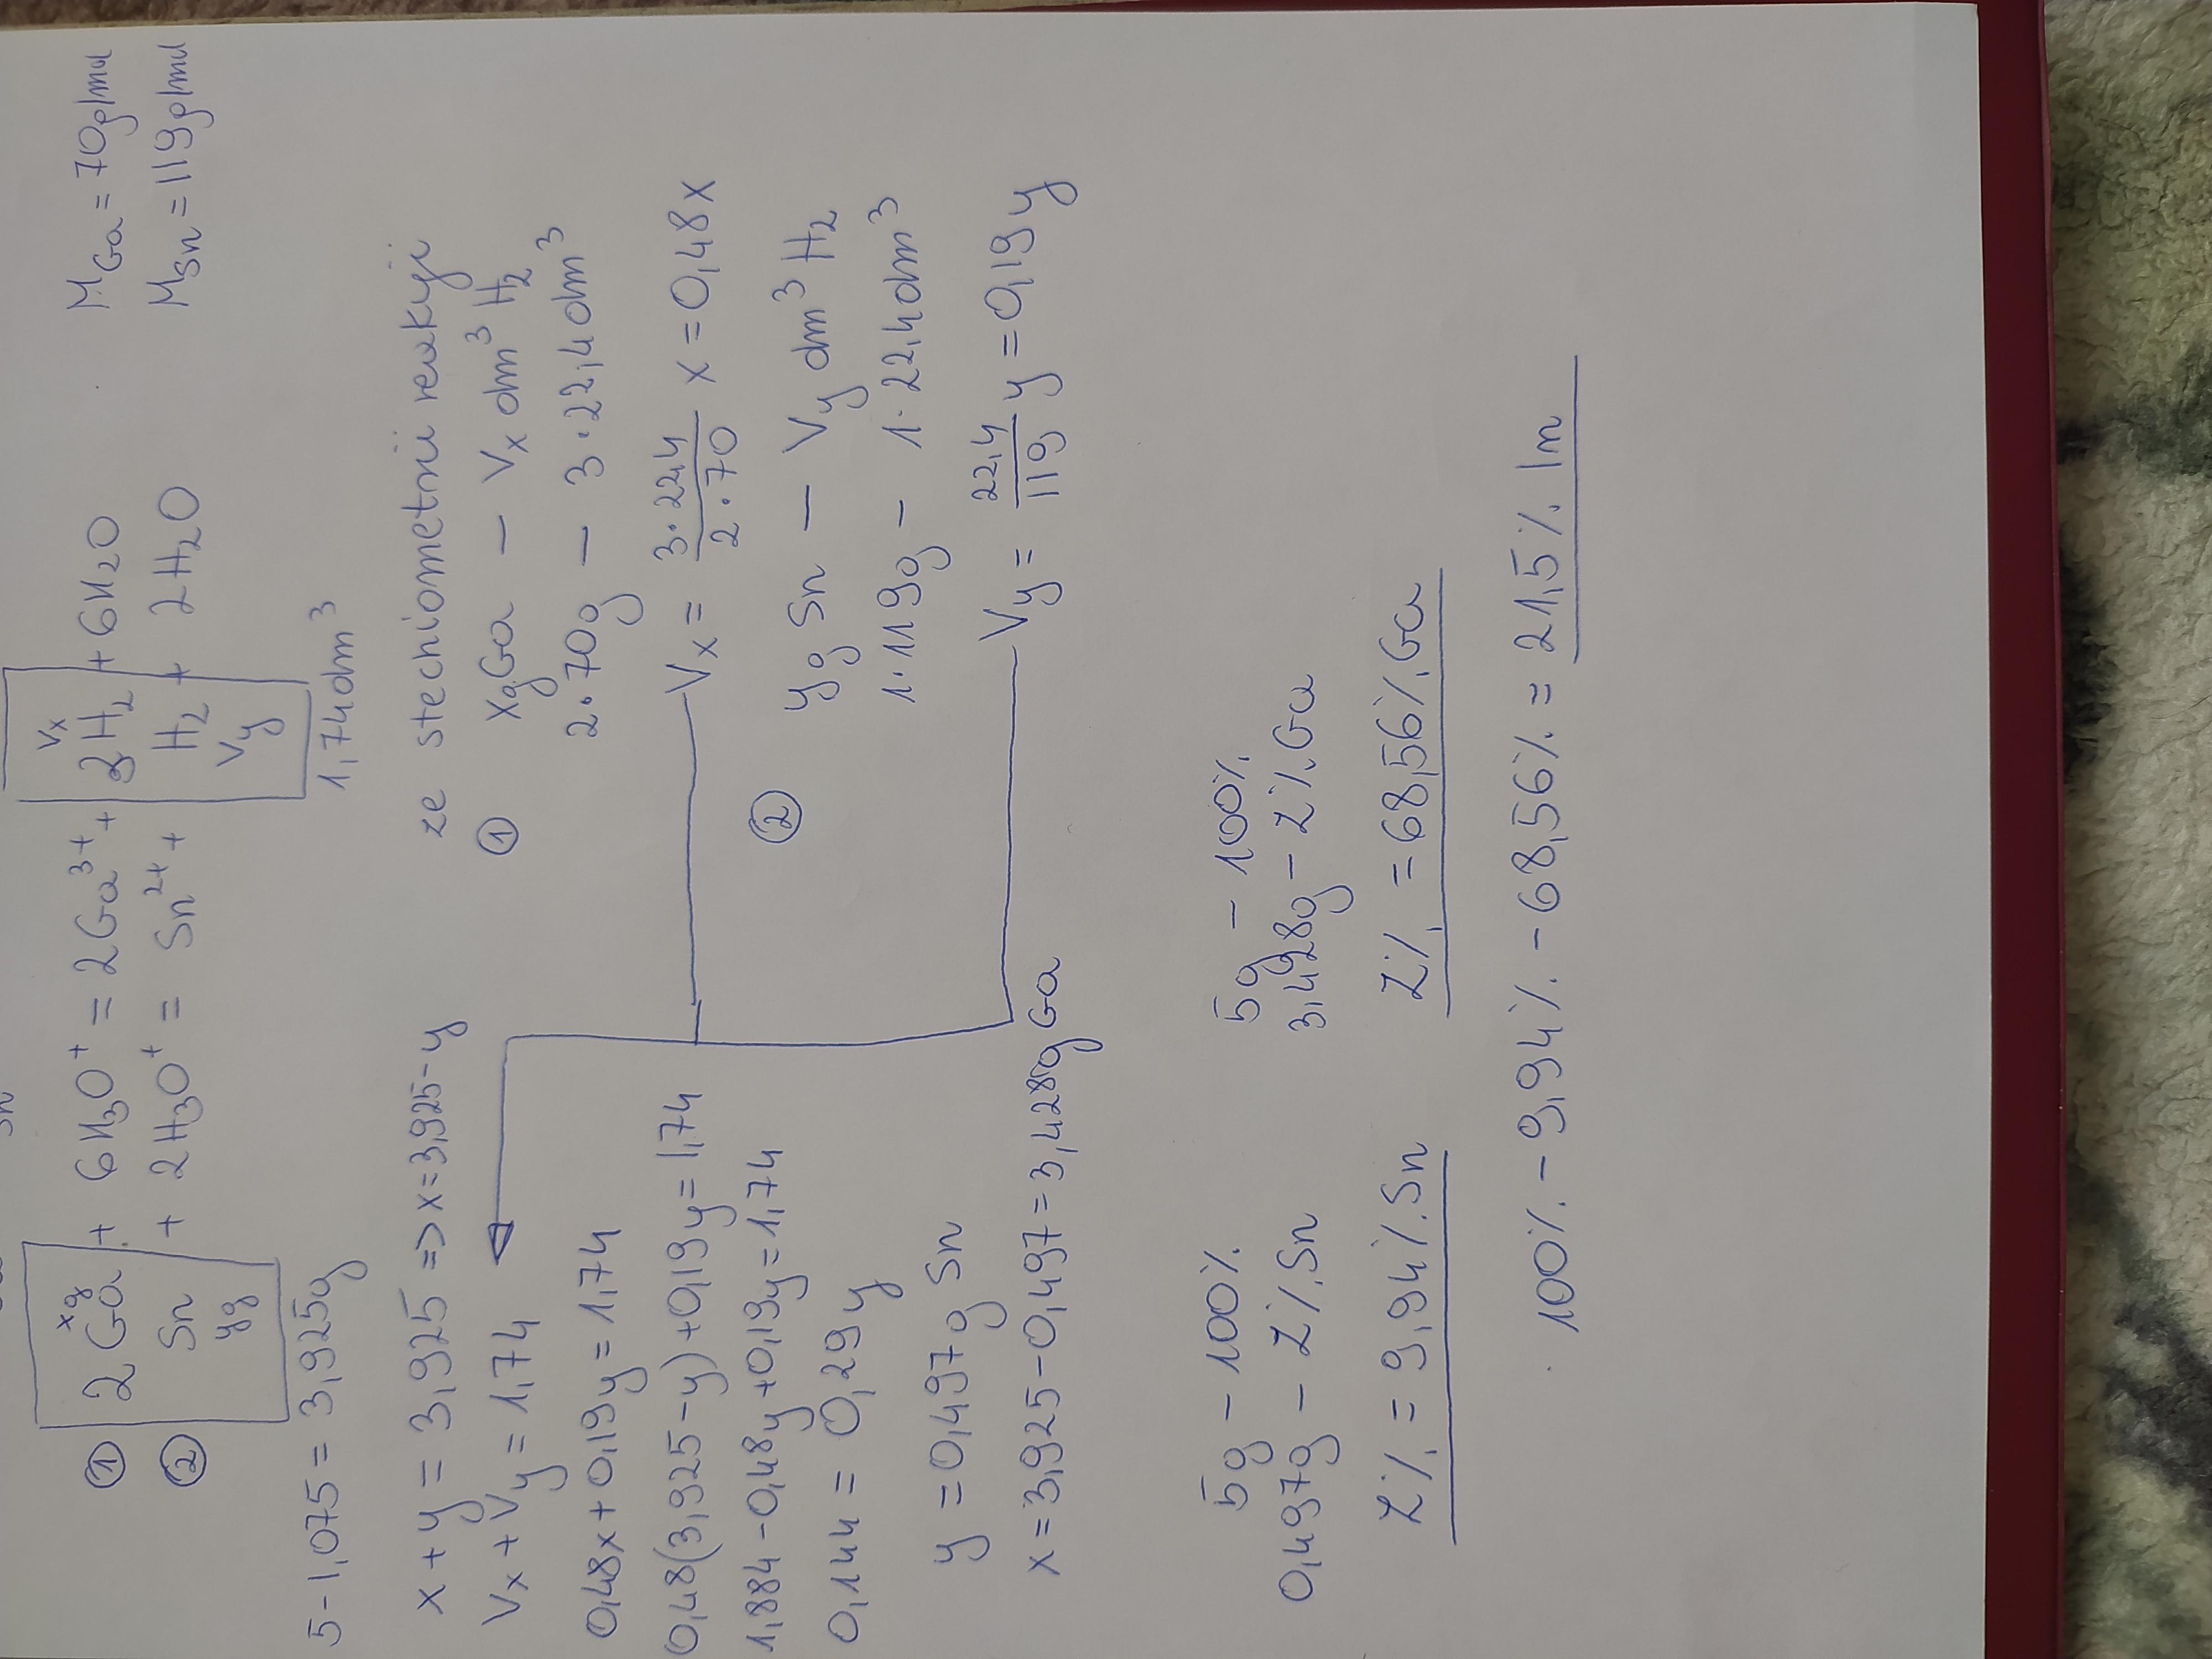 xg Vx
① 2Ga + 6H₃O⁺ = 2Ga³⁺ + 3H₂ + 6H₂O M Ga = 70g/mol
② Sn + 2H₃O⁺ = Sn²⁺ + H₂ + 2H₂O M Sn = 119g/mol
yg Vy
5-1,075 = 3,925g 1,74dm³
x+y = 3,925 => x=3,925-y
Vx+Vy = 1,74
0,48x+0,19y = 1,74
0,48(3,925-y)+0,19y = 1,74
1,884-0,48y+0,19y = 1,74
0,144 = 0,29y
y = 0,497g Sn
x = 3,925-0,497 = 3,428g Ga
ze stechiometrii reakcji
① xg Ga — Vx dm³ H₂
2·70g — 3·22,4dm³
Vx = 3·22,4/2·70 x = 0,48x
② yg Sn — Vy dm³ H₂
1·119g — 1·22,4dm³
Vy = 22,4/119 y = 0,19y
5g - 100%
0,497g - Z% Sn
Z% = 9,94% Sn
5g - 100%
3,428g - Z% Ga
Z% = 68,56% Ga
100% - 9,94% - 68,56% = 21,5% In